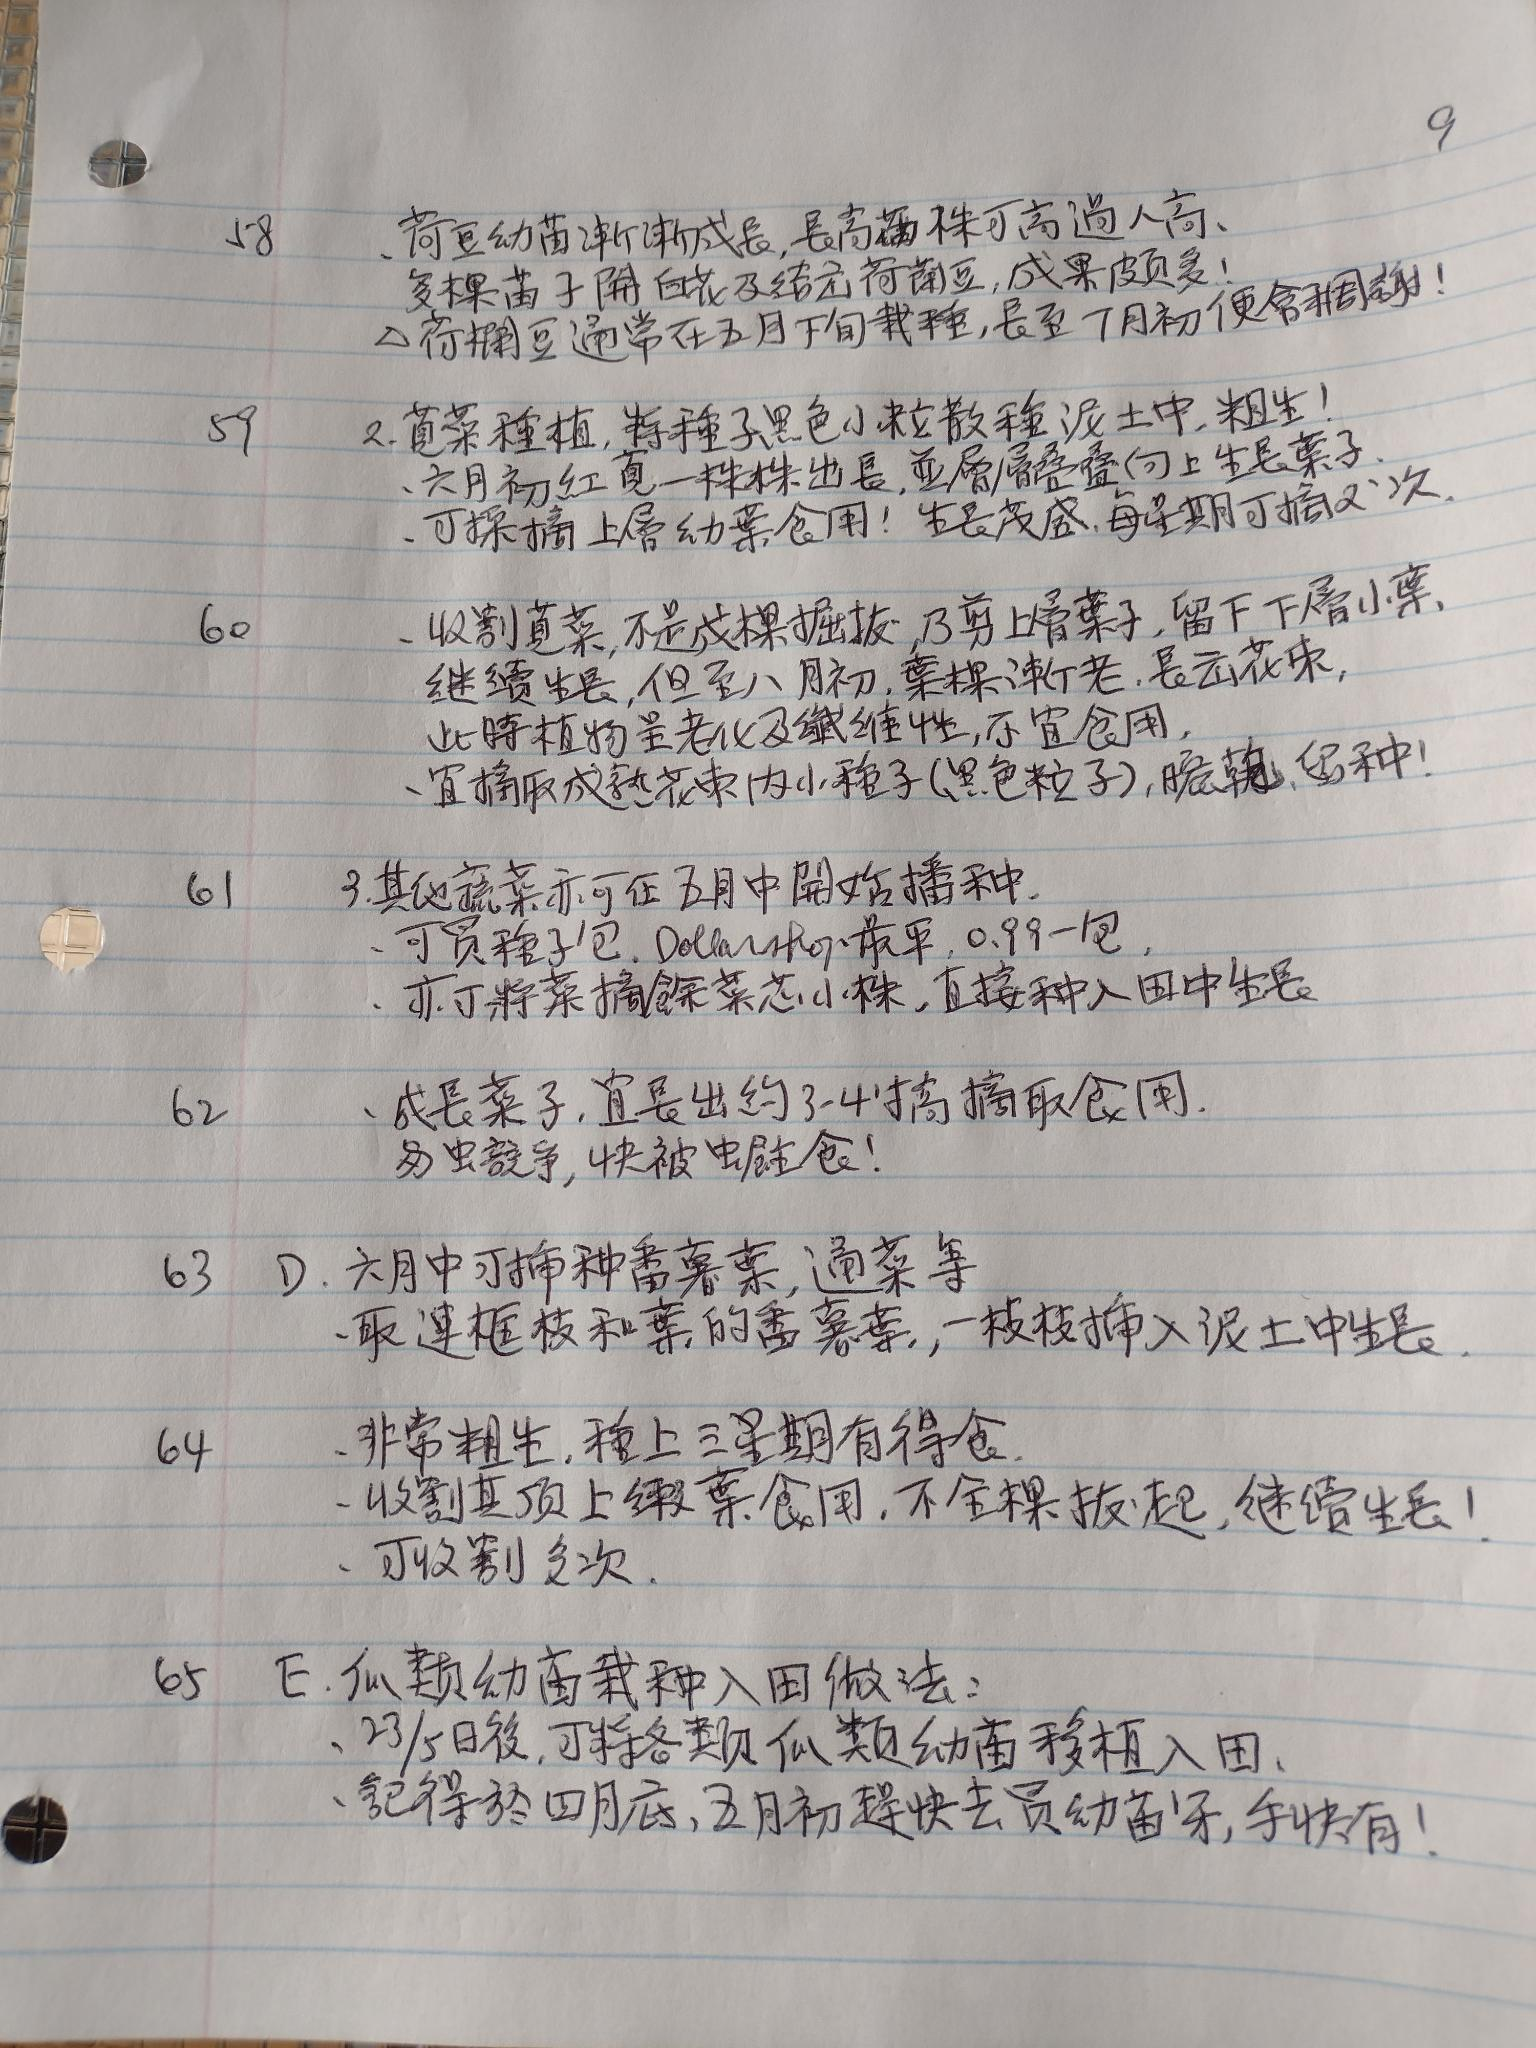 9
58 、荷豆幼苗漸漸成長，長高 株可高過人高、
多棵苗子開白花及結出荷蘭豆，成果頗多！
△荷蘭豆通常在五月下旬栽種，長至7月初便會凋謝！
59 2.莧菜種植，將種子黑色小粒散種泥土中，粗生！
、六月初紅莧一株株出長，並層層疊疊向上生長葉子、
、可採摘上層幼葉食用！生長茂盛，每星期可摘2次、
60 、收割莧菜，不是成棵掘拔，乃剪上層葉子，留下下層小葉、
继續生長，但至八月初，葉棵漸老，長出花束，
此時植物呈老化及纖維性，不宜食用，
、宜摘取成熟花束内小種子(黑色粒子)， 、留种！
61 3.其他蔬菜亦可在五月中開始播种．
、可買種子包．Dollar shop最平，0.99一包，
、亦可將菜摘餘菜芯小株，直接种入田中生長
62 、成長菜子，宜長出約3-4吋高摘取食用．
与虫競爭，快被虫蛀食！
63 D．六月中可插种番薯葉，通菜等
、取連框枝和葉的番薯葉，一枝枝插入泥土中生長．
64 、非常粗生，種上三星期有得食．
、收割其頂上嫩葉食用．不全棵拔起，继續生長！
、可收割多次．
65 E．瓜類幼苗栽种入田做法：
、23/5日後，可將各類瓜類幼苗移植入田、
、記得於四月底、五月初趕快去買幼苗仔，手快有！